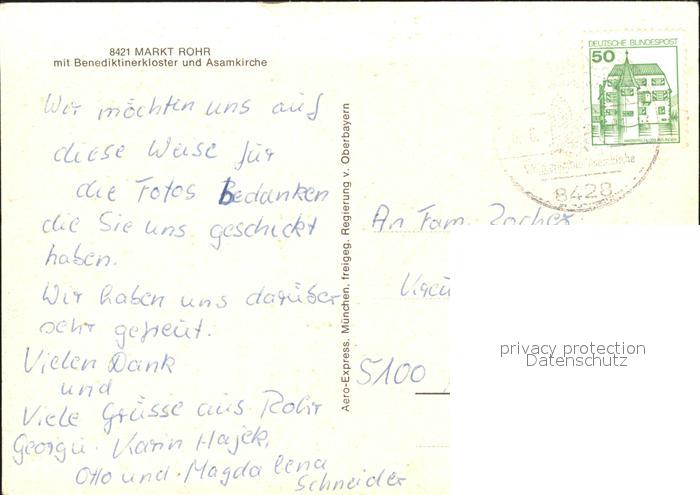 8421 MARKT ROHR
mit Benediktinerkloster und Asamkirche
Wir möchten uns auf
diese Weise für
die Fotos Bedanken
die Sie uns geschickt
haben.
Wir haben uns darüber
sehr gefreut.
Vielen Dank
und
Viele Grüsse aus Rohr
Georg u. Karin Hajek,
Otto und Magdalena
Schneider
Aero-Express, München, freigeg. Regierung v. Oberbayern
DEUTSCHE BUNDESPOST
50
8428
An Fam.
5100
privacy protection
Datenschutz